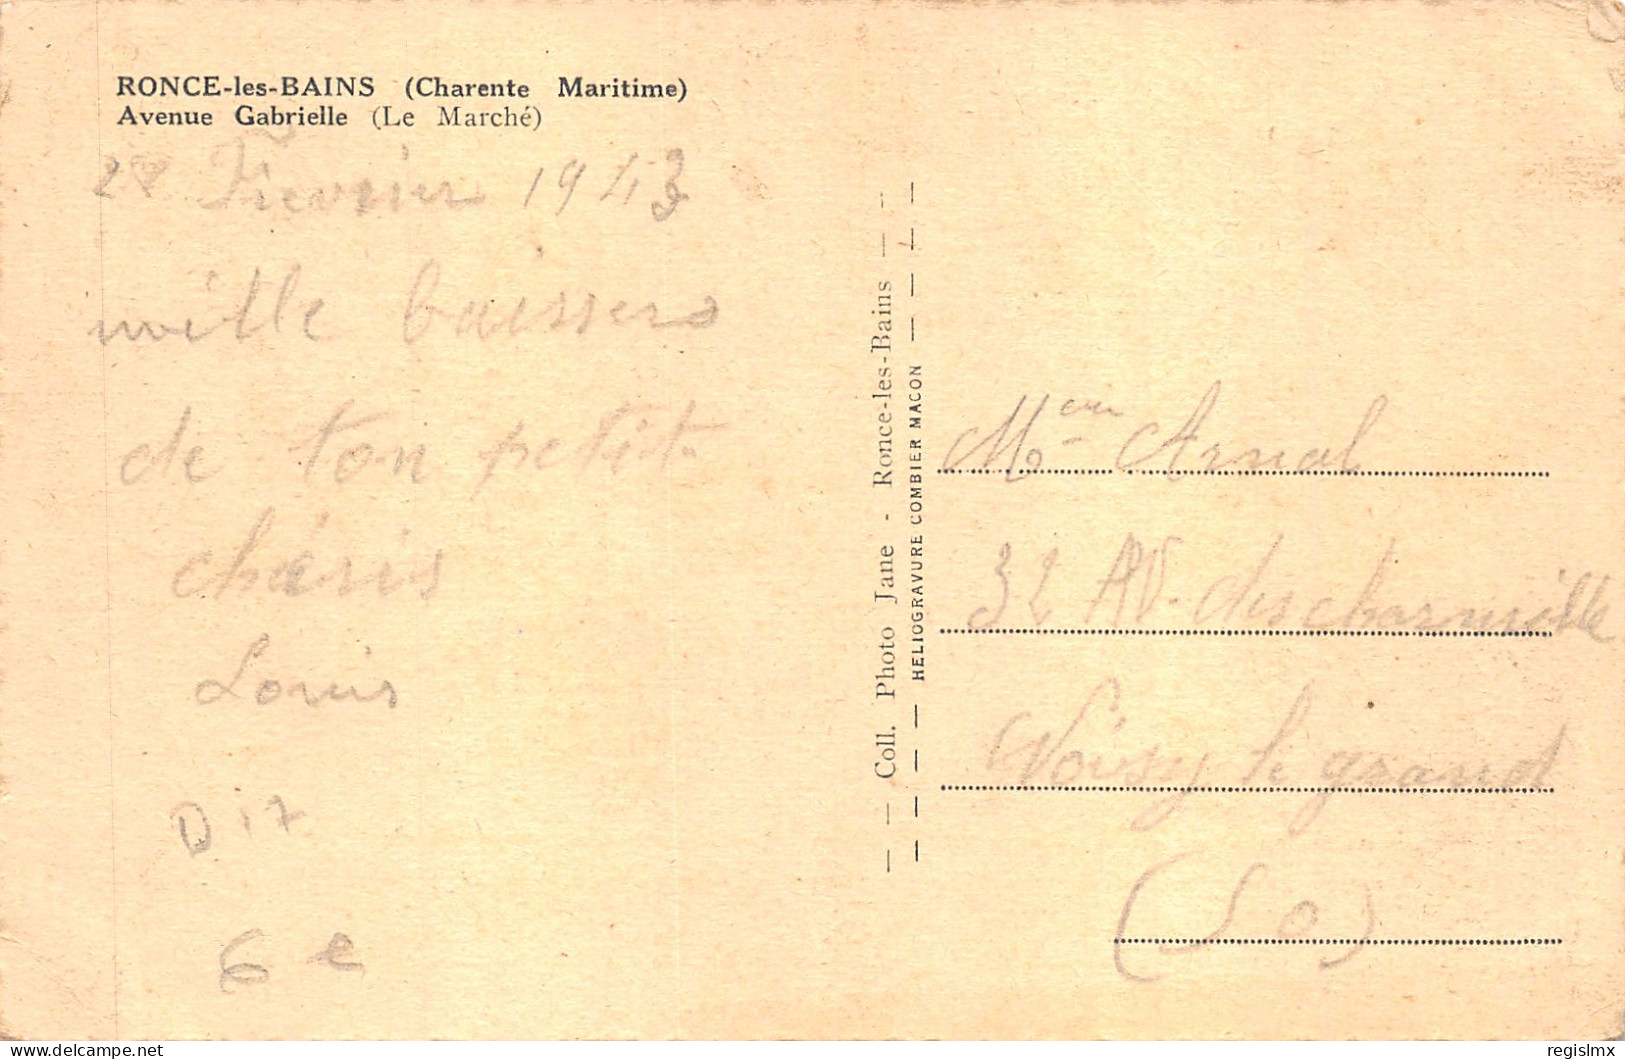 RONCE-les-BAINS (Charente Maritime)
Avenue Gabrielle (Le Marché)
Fievrier 1943
mille baissers
de ton petit
chéris
Louis
D 17
6 e
— — Coll. Photo Jane - Ronce-les-Bains — —
— — — HELIOGRAVURE COMBIER MACON — — —
Mme Arnal
32 AV. des charmille
Noisy le grand
(S O)
regislmx
delcampe.net